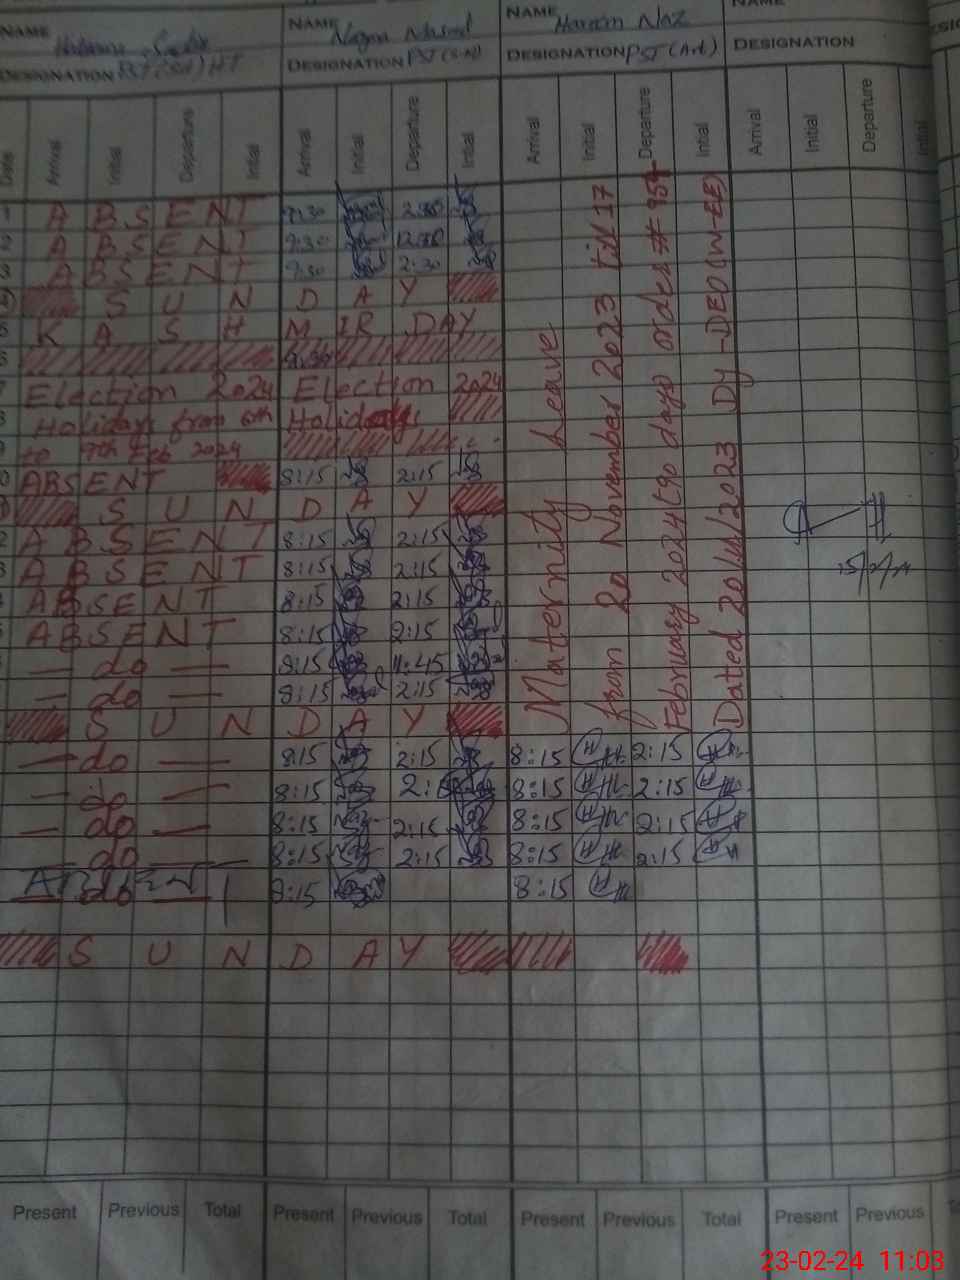 NAME NAME Nagma Masud NAME Hareem Naz NAME
DESIGNATION PST (SA) HT DESIGNATION PST (SN) DESIGNATION PST (Art) DESIGNATION
Date Arrival Initial Departure Initial Arrival Initial Departure Initial Arrival Initial Departure Initial Arrival Initial Departure Initial
1 ABSENT 9:30 2:30
2 ABSENT 9:30 12:30
3 ABSENT 9:30 2:30
4 SUNDAY
5 KASHMIR DAY
6 9:30
7 Election 2024 Election 2024
8 Holidays from 6th Holidays
9 to 9th Feb 2024
0 ABSENT 8:15 2:15
SUNDAY
2 ABSENT 8:15 2:15
3 ABSENT 8:15 2:15
ABSENT 8:15 2:15
ABSENT 8:15 2:15
— do — 8:15 11:45
— do — 8:15 2:15
SUNDAY
— do — 8:15 2:15 8:15 2:15
— do — 8:15 8:15 2:15
— do — 8:15 2:15 8:15 2:15
— do — 8:15 2:15 8:15 2:15
ABSENT do 8:15 8:15
SUNDAY
Maternity Leave
from 20 November 2023 till 17
February 2024 (90 days) order # 957
Dated 20/11/2023 Dy-DEO (W-EE)
15/2/24
Present Previous Total Present Previous Total Present Previous Total Present Previous
23-02-24 11:03